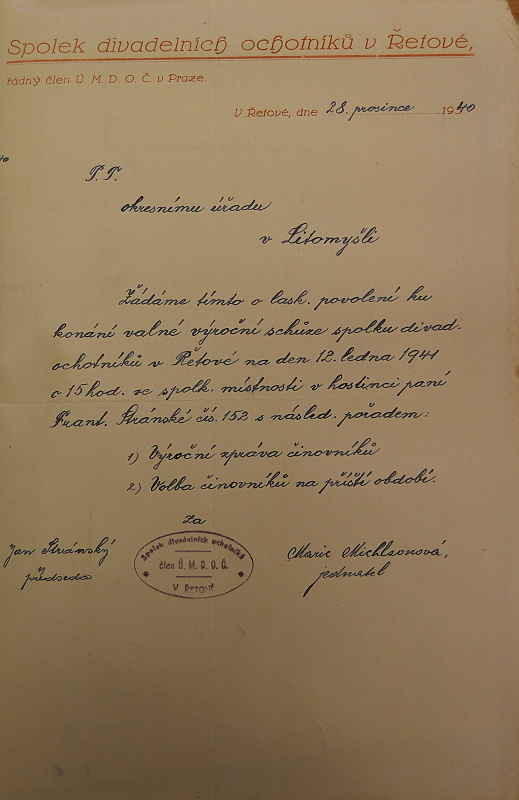 Spolek divadelních ochotníků v Řetové,
řádný člen Ú. M. D. O. Č. v Praze.
V Řetové, dne 28. prosince 1940
P. T.
okresnímu úřadu
v Litomyšli
Žádáme tímto o lask. povolení ku
konání valné výroční schůze spolku divad.
ochotníků v Řetové na den 12. ledna 1941
o 15 hod. ve spolk. místnosti v hostinci paní
Frant. Stránské čís. 152 s násled. pořadem:
1) Výroční zpráva činovníků
2) Volba činovníků na příští období.
Za
Jan Stránský
předseda
Spolek divadelních ochotníků
člen Ú. M. D. O. Č.
V ŘETOVÉ
Marie Michlsonová,
jednatel